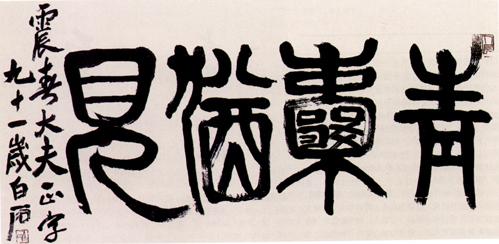 青囊猶見
震春大夫正字
九十一歲白石